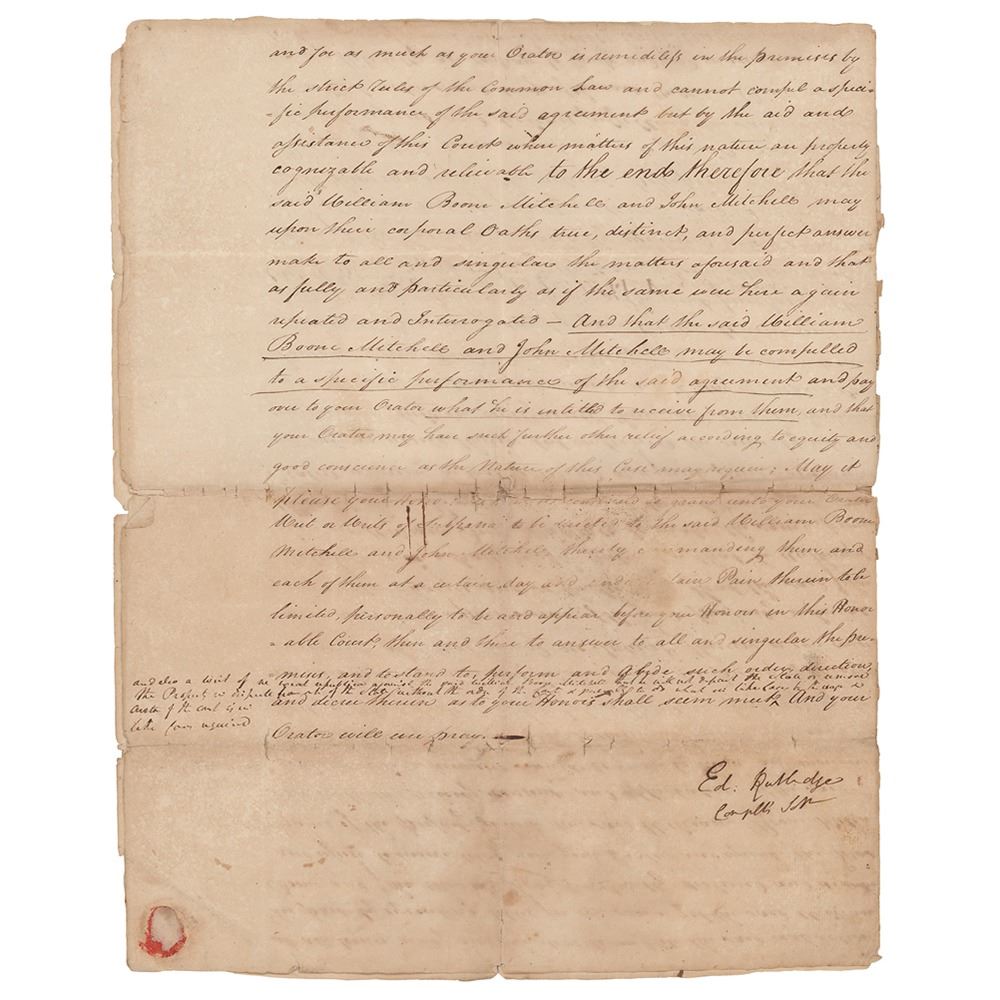 and for as much as your Orator is remidiless in the premises by
the strict rules of the Common Law and cannot compel a speci-
-fic performance of the said agreement but by the aid and
assistance of this Court where matters of this nature are properly
cognizable and relievable to the end therefore that the
said William Boone Mitchell and John Mitchell may
upon their corporal Oaths true, distinct, and perfect answer
make to all and singular the matters aforesaid and that
as fully and particularly as if the same were here again
repeated and Interrogated — And that the said William
Boone Mitchell and John Mitchell may be compelled
to a specific performance of the said agreement and pay
over to your Orator what he is intitled to receive from them, and that
your Orator may have such further other relief according to equity and
good conscience as the Nature of this Case may require; May it
please your unto your Orator
Writ or Writs of Subpœna to be directed to the said William Boone
Mitchell and John Mitchell, thereby commanding them and
each of them at a certain day and under certain Pain therein to be
limited, personally to be and appear before your Honors in this Honor
-able Court, then and there to answer to all and singular the pre-
-mises, and to stand to, perform and Abide such order, direction
and also a writ of ne exeat republica against the said William Boone Mitchell that he will not depart the State or remove
the Property in dispute from out of the State without the order of the Court
and decree therein as to your Honors shall seem meet, And your
like form required
Orator will ever pray. —
Ed: Rutledge
Complts Solr